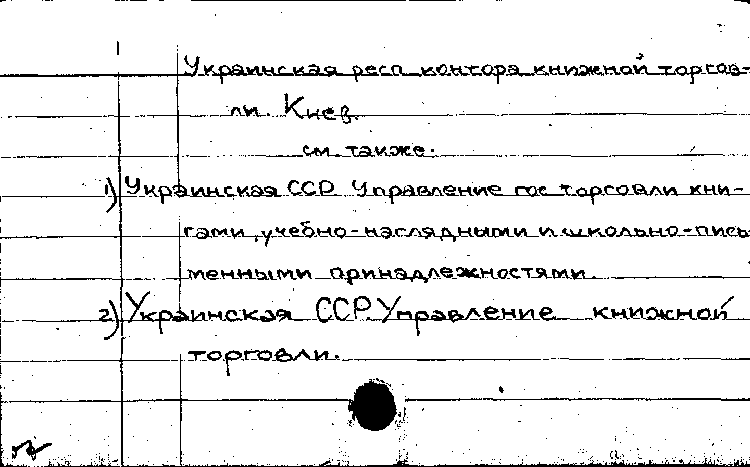 Украинская респ. контора книжной торгов-
ли. Киев.
см. также.
1) Украинская ССР. Управление гос торговли кни-
гами, учебно-наглядными и школьно-пись
менными принадлежностями.
2) Украинская ССР. Управление книжной
торговли.